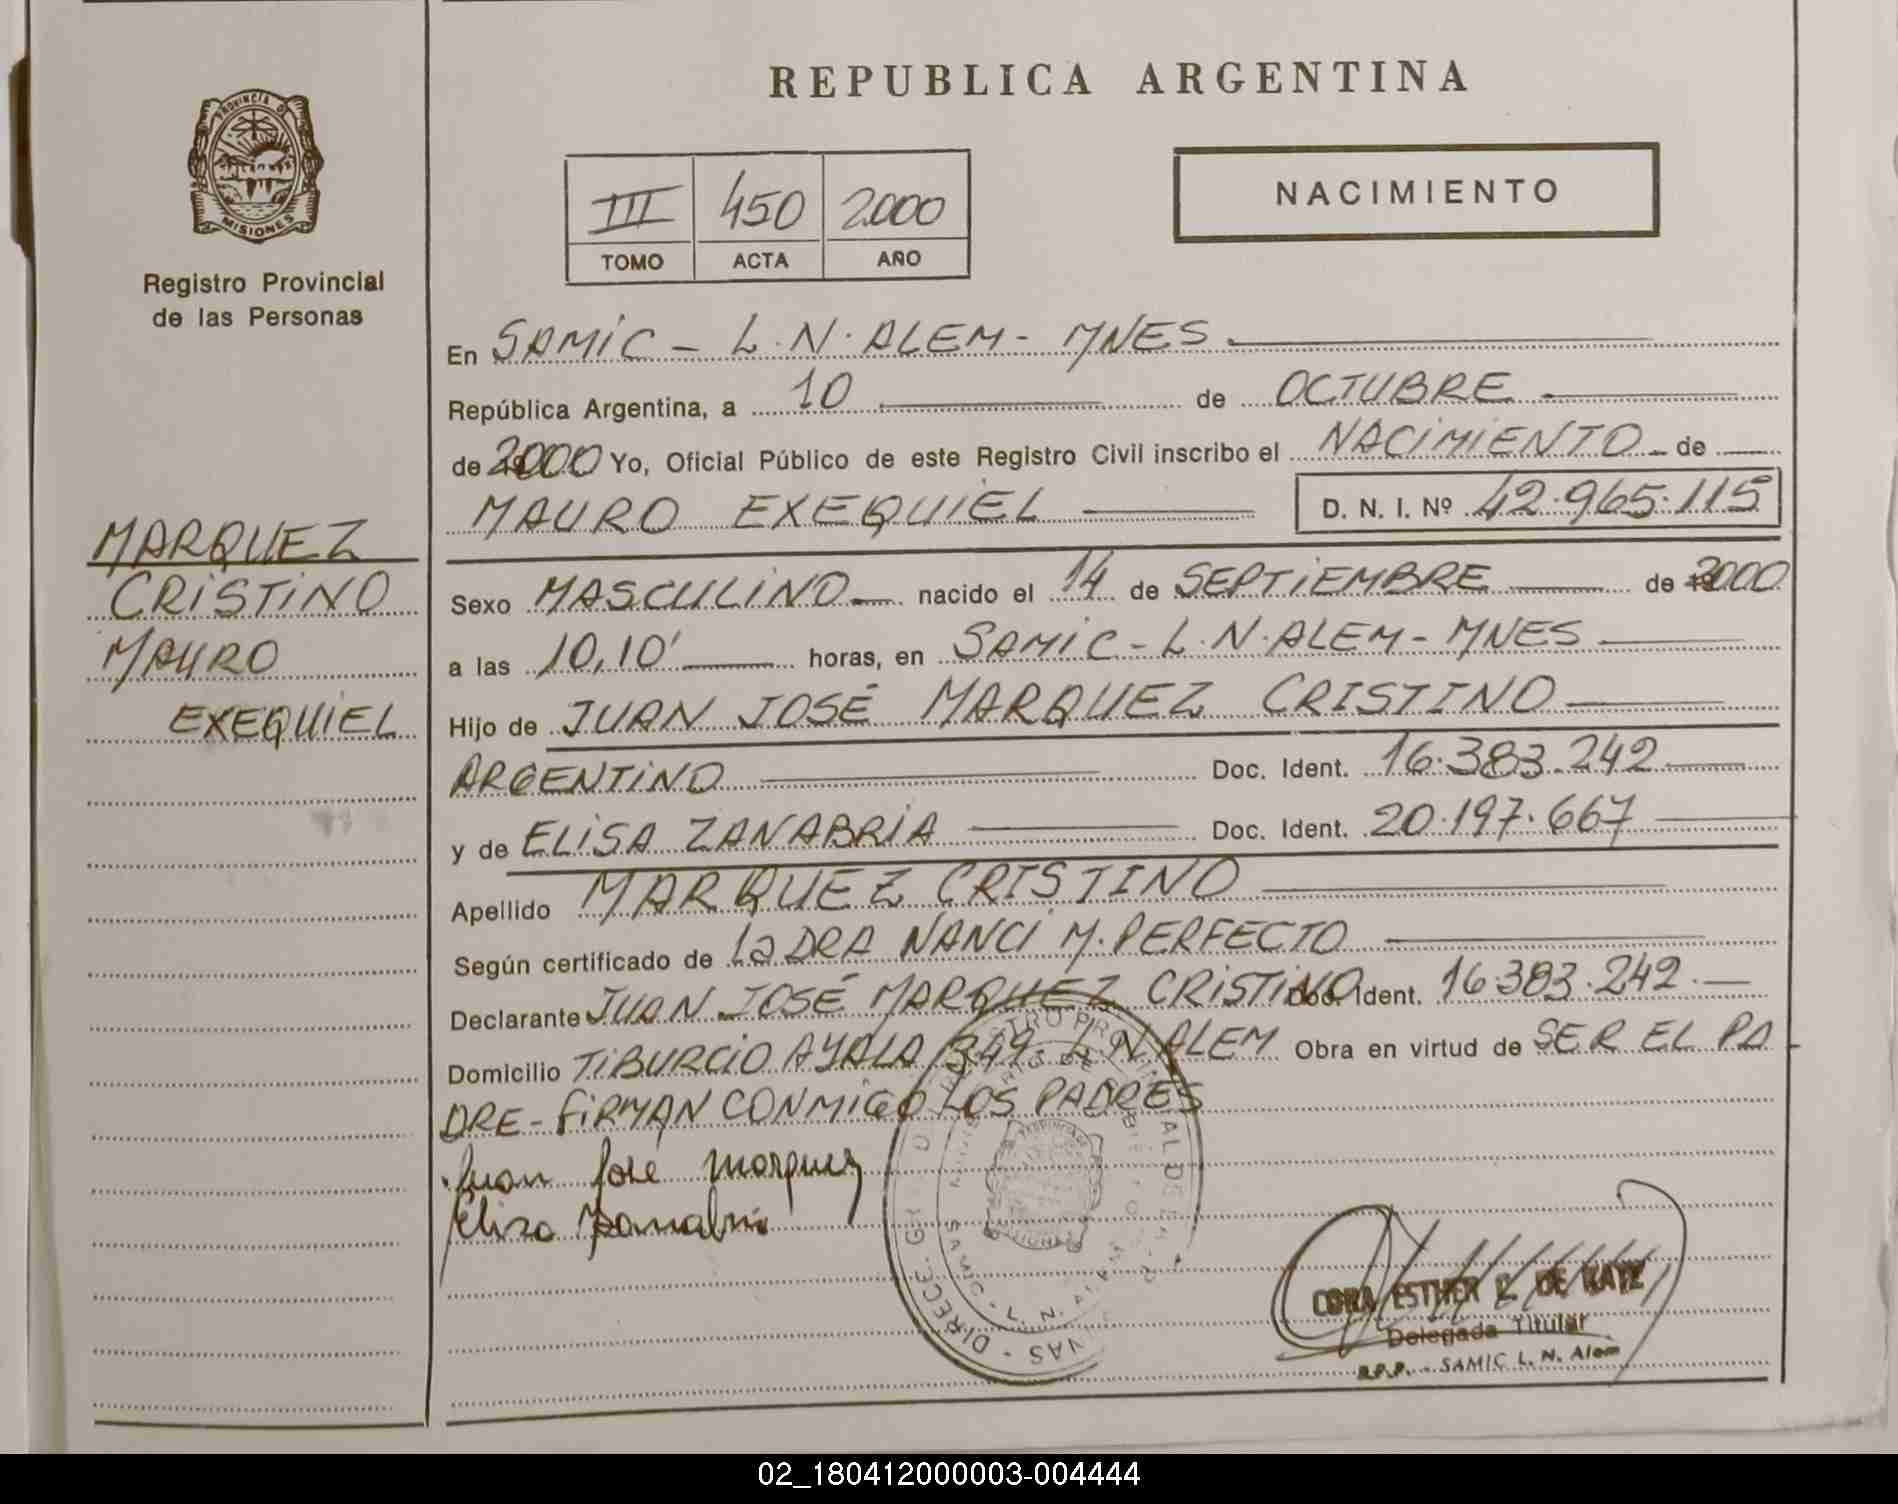 REPUBLICA ARGENTINA
PROVINCIA DE
MISIONES
Registro Provincial
de las Personas
NACIMIENTO
III 450 2000
TOMO ACTA AÑO
En SAMIC - L.N. ALEM - MNES.
República Argentina, a 10 de OCTUBRE
de 2000 Yo, Oficial Público de este Registro Civil inscribo el NACIMIENTO de
MAURO EXEQUIEL D. N. I. Nº 42.965.115
MARQUEZ
CRISTINO
MAURO
EXEQUIEL
Sexo MASCULINO nacido el 14 de SEPTIEMBRE de 2000
a las 10,10' horas, en SAMIC - L.N. ALEM - MNES
Hijo de JUAN JOSÉ MARQUEZ CRISTINO
ARGENTINO Doc. Ident. 16.383.242
y de ELISA ZANABRIA Doc. Ident. 20.197.667
Apellido MARQUEZ CRISTINO
Según certificado de la DRA NANCI M. PERFECTO
Declarante JUAN JOSÉ MARQUEZ CRISTINO Doc. Ident. 16.383.242.
Domicilio TIBURCIO AYALA 349 L N ALEM Obra en virtud de SER EL PA
DRE - FIRMAN CONMIGO LOS PADRES
Juan José Marquez
Elisa Zanabria
ESTHER DE
Delegada Titular
R.P.P. - SAMIC L. N. Alem
02_180412000003-004444